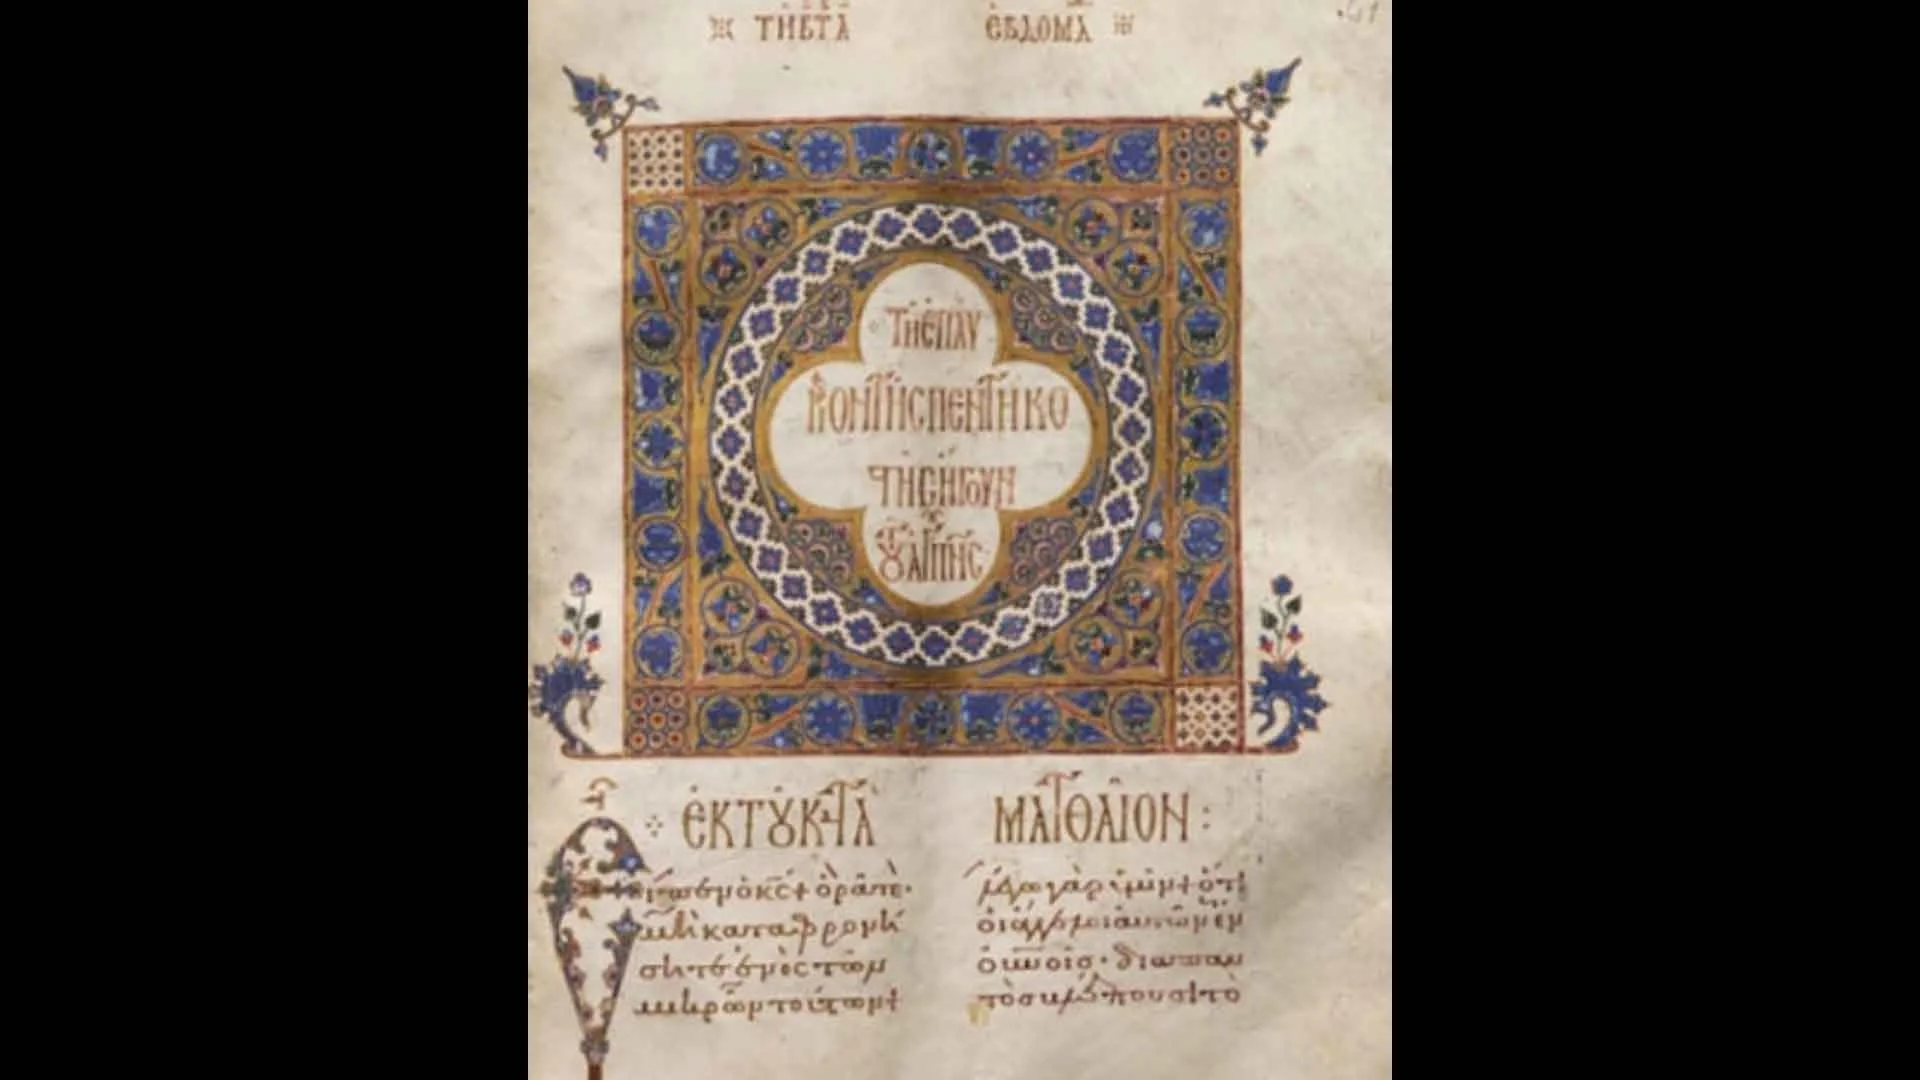 ΤΗ Β ΤΑ ΕΒΔΟΜΑ
ΤΗ ΕΠΑΥ
ΡΙΟΝ ΤΗΣ ΠΕΝΤΗΚΟ
ΣΤΗΣ ΗΓΟΥΝ
ΤΟΥ ΑΓ ΠΝΣ
ΕΚ ΤΟΥ ΚΑΤΑ
ΜΑΤΘΑΙΟΝ :
Εἶπεν ὁ κς + ὁρᾶτε ·
μὴ καταφρονή
σητε ἑνὸς τῶν
μικρῶν τούτων +
λέγω γὰρ ὑμῖν + ὅτι
οἱ ἄγγελοι αὐτῶν ἐν
οὐνοῖς · διαπαν
τὸς βλέπουσι τὸ